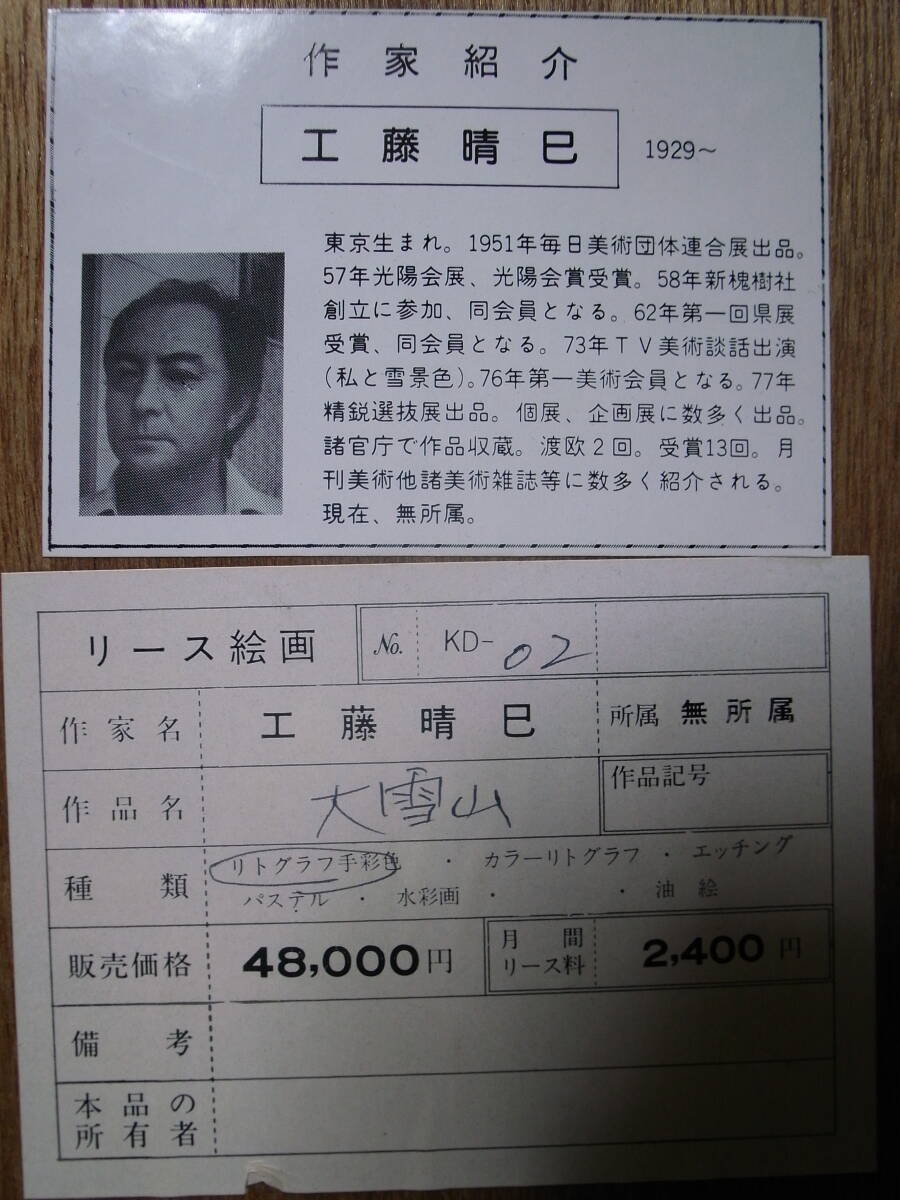 作家紹介
工藤晴巳 1929～
東京生まれ。1951年毎日美術団体連合展出品。
57年光陽会展、光陽会賞受賞。58年新槐樹社
創立に参加、同会員となる。62年第一回県展
受賞、同会員となる。73年TV美術談話出演
(私と雪景色)。76年第一美術会員となる。77年
精鋭選抜展出品。個展、企画展に数多く出品。
諸官庁で作品収蔵。渡欧2回。受賞13回。月
刊美術他諸美術雑誌等に数多く紹介される。
現在、無所属。
リース絵画 No. KD-02
作家名 工藤晴巳 所属 無所属
作品名 大雪山 作品記号
種類 リトグラフ手彩色 ・ カラーリトグラフ ・ エッチング
パステル ・ 水彩画 ・ ・ 油絵
販売価格 48,000円 月間リース料 2,400円
備考
本品の
所有者